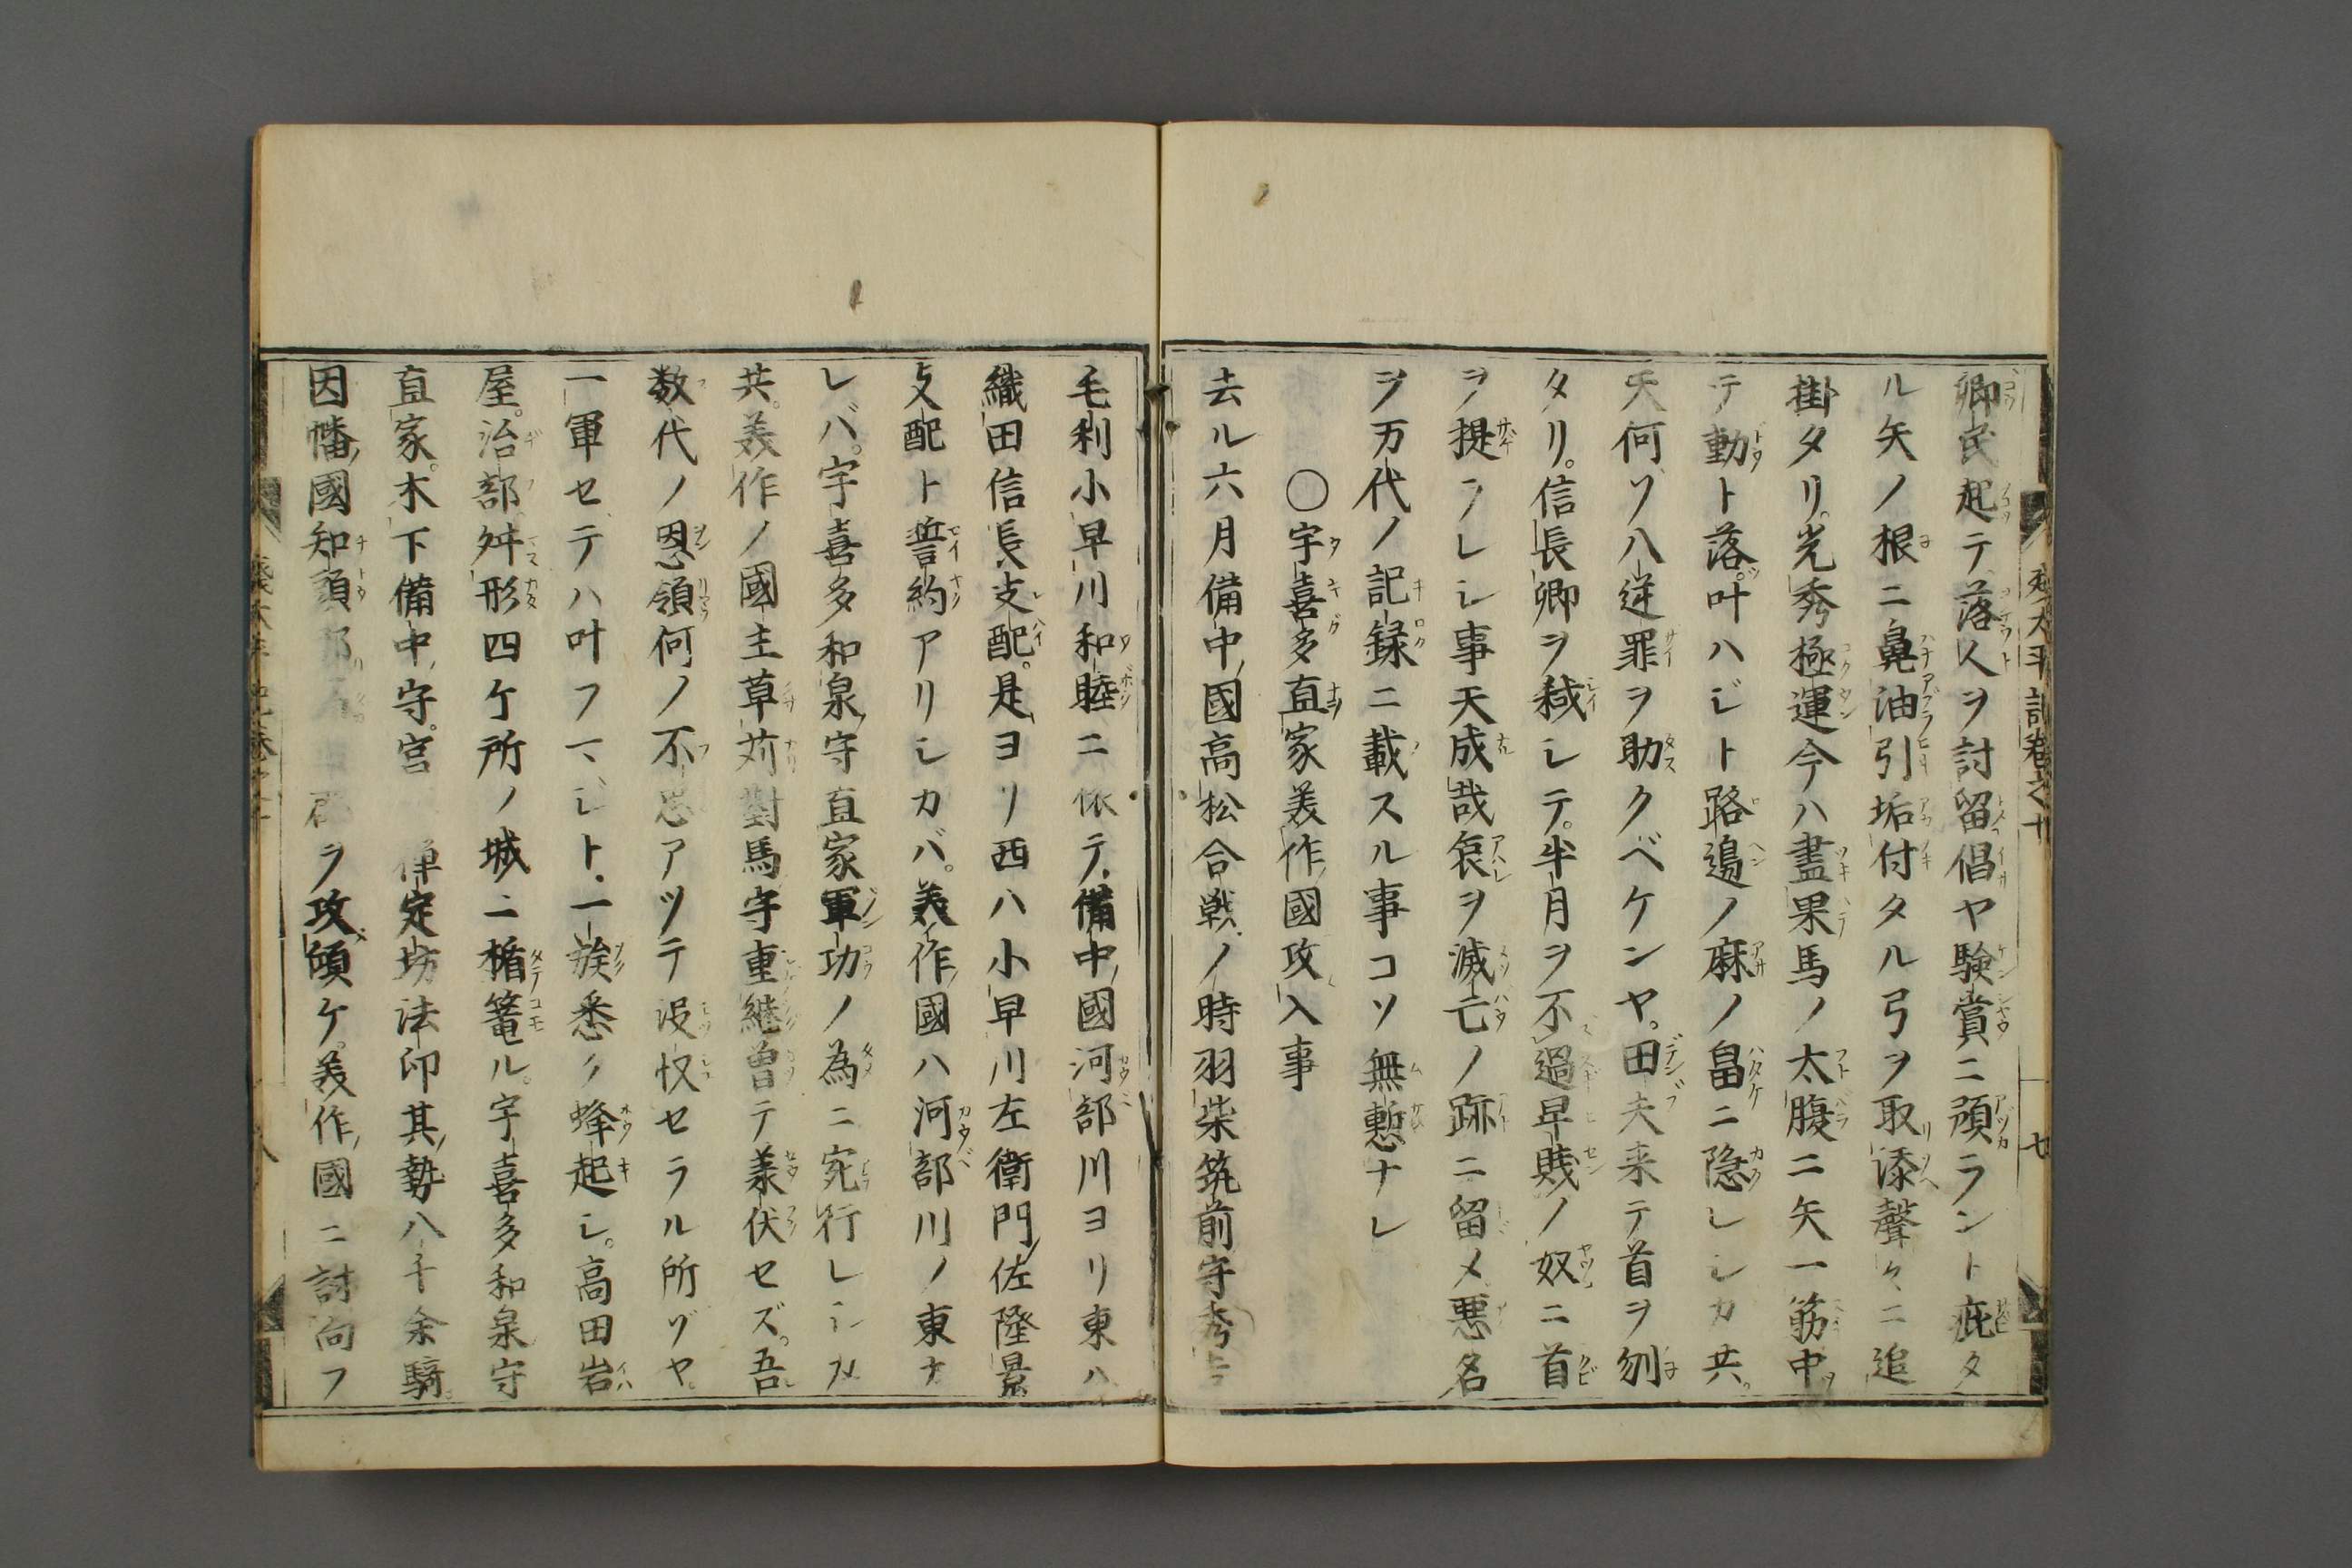 卿民起テ落人ヲ討留倡ヤ験賞ニ預ラント庇タ
ル矢ノ根ニ鼻油引垢付タル弓ヲ取添聲々ニ追
掛タリ。光秀極運今ハ盡果馬ノ太腹ニ矢一筋中
テ動ト落。叶ハジト路邉ノ麻ノ畠ニ隠レシカ共。
天何ソ八逆罪ヲ助クベケンヤ。田夫来テ首ヲ刎
タリ。信長卿ヲ弑シテ。半月ヲ不過早賎ノ奴ニ首
ヲ提ラレシ事天成哉哀ヲ滅亡ノ跡ニ留メ悪名
ヲ万代ノ記録ニ載スル事コソ無慙ナレ
〇宇喜多直家美作國攻入事
去ル六月備中國高松合戦ノ時羽柴筑前守秀吉
毛利小早川和睦ニ依テ備中國河部川ヨリ東ハ
織田信長支配。是ヨリ西ハ小早川左衛門佐隆景
支配ト誓約アリシカバ。美作國ハ河部川ノ東ナ
レバ。宇喜多和泉守直家軍功ノ為ニ宛行レシカ
共。美作ノ國主草苅對馬守重継曽テ義伏セズ。吾
数代ノ恩領何ノ不忠アツテ没収セラル所ゾヤ。
一軍セテハ叶フマジト一族悉ク蜂起シ。高田岩
屋。治部舛形四ケ所ノ城ニ楯篭ル。宇喜多和泉守
直家。木下備中守。宮 禅定坊法印其勢八千余騎。
因幡國知頭郡 郡ヲ攻傾ケ。美作國ニ討向フ
太平記巻之十
七
八